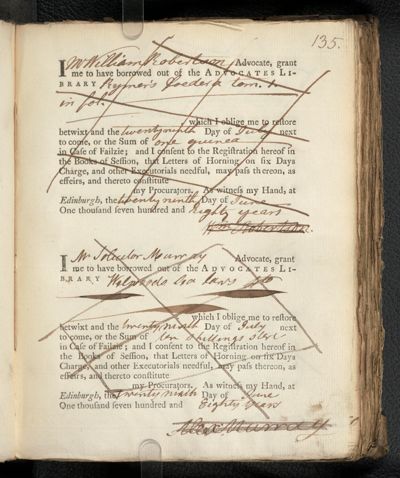 135.
I Mr William Robertson Advocate, grant
me to have borrowed out of the ADVOCATES LI-
BRARY Rymer's Foedera tom. 1.
in fol.
which I oblige me to restore
betwixt and the twenty ninth Day of July next
to come, or the Sum of one guinea
in Case of Failzie; and I consent to the Registration hereof in
the Books of Session, that Letters of Horning on six Days
Charge, and other Executorials needful, may pass thereon, as
effeirs, and thereto constitute
my Procurators. As witness my Hand, at
Edinburgh, the twenty ninth Day of June
One thousand seven hundred and Eighty years
Will Robertson.
I Mr Solicitor Murray Advocate, grant
me to have borrowed out of the ADVOCATES LI-
BRARY Welwoods Sea Laws
which I oblige me to restore
betwixt and the twenty ninth Day of July next
to come, or the Sum of ten shillings Ster
in Case of Failzie; and I consent to the Registration hereof in
the Books of Session, that Letters of Horning on six Days
Charge, and other Executorials needful, may pass thereon, as
effeirs, and thereto constitute
my Procurators. As witness my Hand, at
Edinburgh, the twenty ninth Day of June
One thousand seven hundred and Eighty Years
Alexr Murray